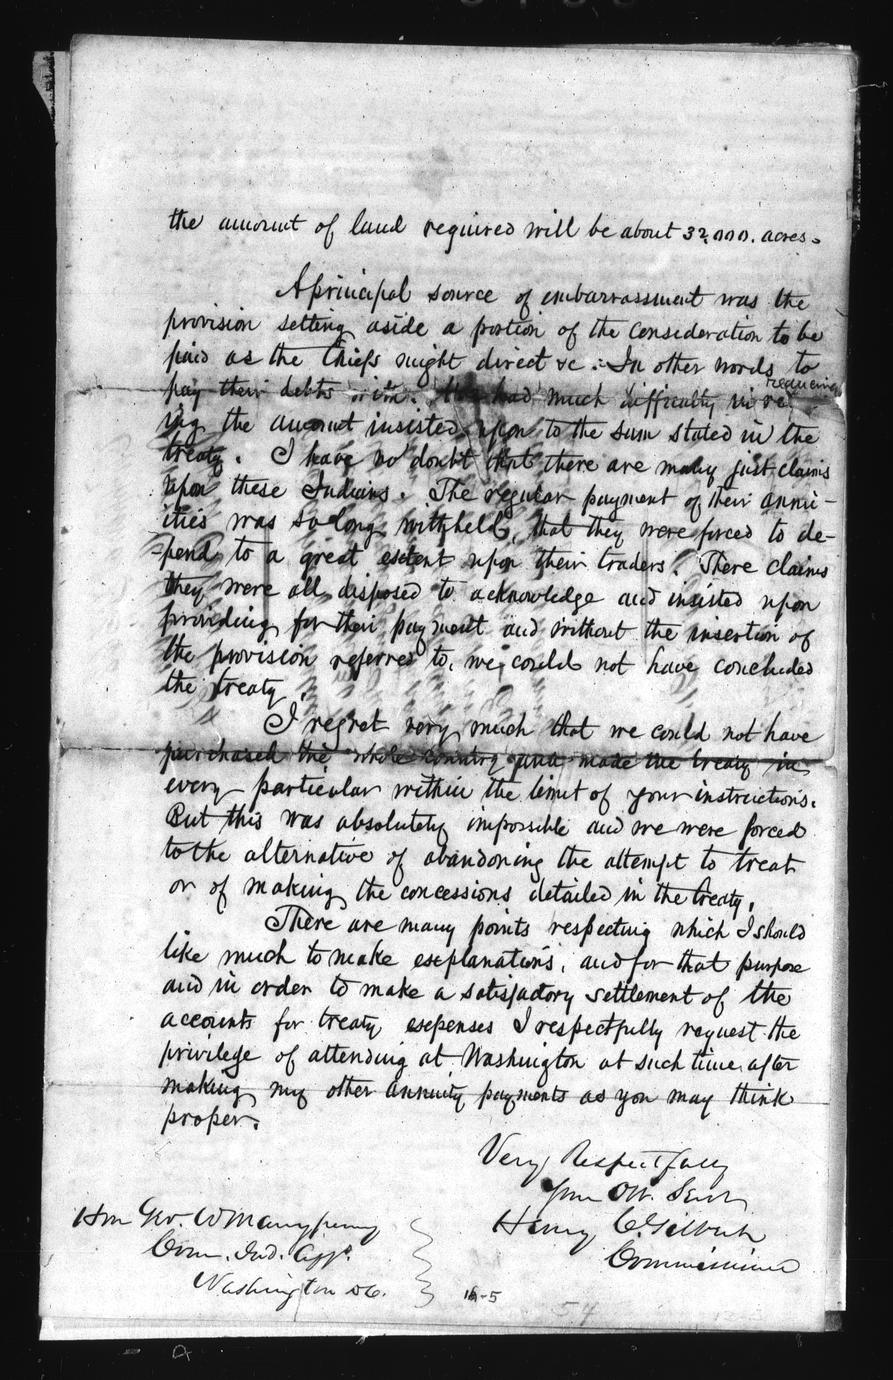 the amount of land required will be about 32,000. acres.
A principal source of embarrassment was the
provision setting aside a portion of the consideration to be
paid as the Chiefs might direct &c. In other words to
reducing
pay their debts with. We had much difficulty in re
ing the amount insisted upon to the sum stated in the
treaty. I have no doubt that there are many just claims
upon these Indians. The regular payment of their annu-
ities was so long withheld, that they were forced to de-
-pend to a great extent upon their traders. There claims
they were all disposed to acknowledge and insisted upon
providing for their payment and without the insertion of
the provision referred to, we could not have concluded
the treaty.
I regret very much that we could not have
purchased the whole country and made the treaty in
every particular within the limit of your instructions.
But this was absolutely impossible and we were forced
to the alternative of abandoning the attempt to treat
or of making the concessions detailed in the treaty.
There are many points respecting which I should
like much to make explanations, and for that purpose
and in order to make a satisfactory settlement of the
accounts for treaty expenses I respectfully request the
privilege of attending at Washington at such time after
making my other annuity payments as you may think
proper.
Very Respectfully
Your Obt. Servt
Henry C Gilbert
Commissioner
Hon Geo. W Manypenny
Com. Ind. Affs.
Washington DC.
16-5
54